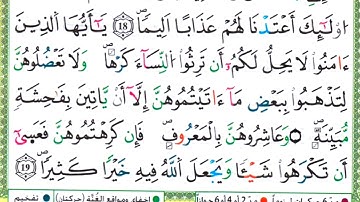 أُو۟لَٰٓئِكَ أَعْتَدْنَا لَهُمْ عَذَابًا أَلِيمًا ١٨ يَٰٓأَيُّهَا ٱلَّذِينَ
ءَامَنُوا۟ لَا يَحِلُّ لَكُمْ أَن تَرِثُوا۟ ٱلنِّسَآءَ كَرْهًا ۖ وَلَا تَعْضُلُوهُنَّ
لِتَذْهَبُوا۟ بِبَعْضِ مَآ ءَاتَيْتُمُوهُنَّ إِلَّآ أَن يَأْتِينَ بِفَٰحِشَةٍ
مُّبَيِّنَةٍ ۚ وَعَاشِرُوهُنَّ بِٱلْمَعْرُوفِ ۚ فَإِن كَرِهْتُمُوهُنَّ فَعَسَىٰٓ
أَن تَكْرَهُوا۟ شَيْـًٔا وَيَجْعَلَ ٱللَّهُ فِيهِ خَيْرًا كَثِيرًا ١٩
إخفاء، ومواقع الغنّة (حركتان) تفخيم